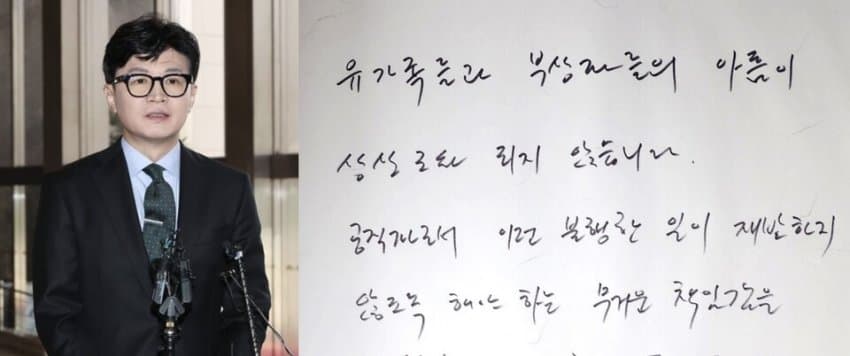 유가족들과 부상자들의 아픔이
상상조차 되지 않습니다.
공직자로서 이런 불행한 일이 재발하지
않도록 해야 하는 무거운 책임감을